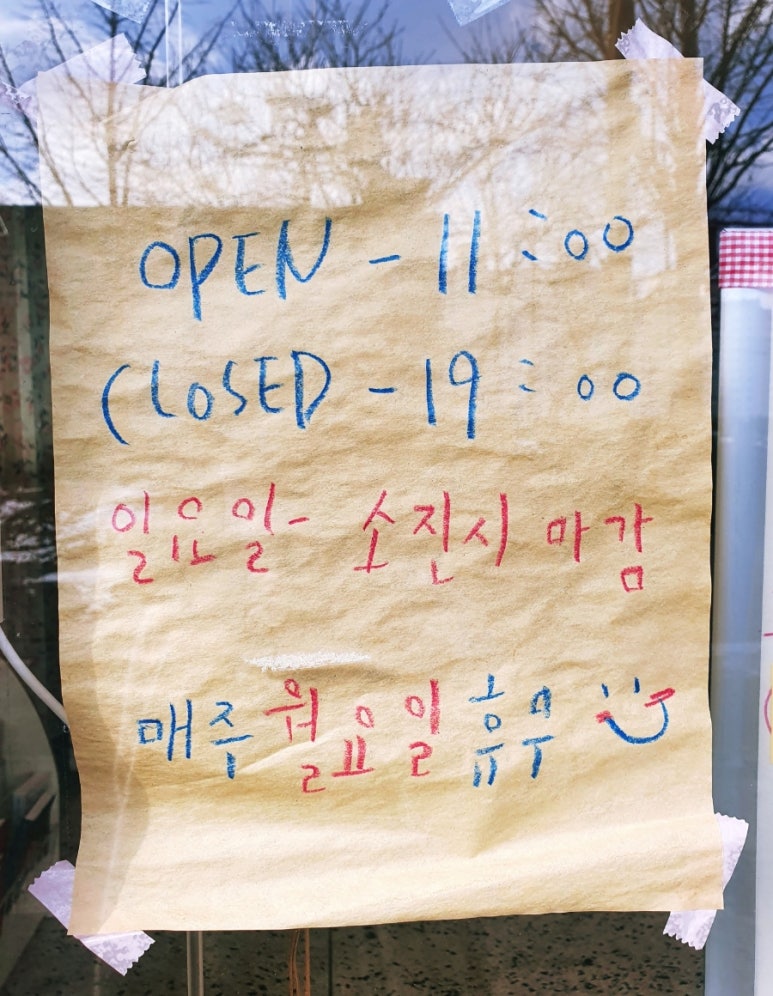 OPEN - 11:00
CLOSED - 19:00
일요일- 소진시 마감
매주 월요일 휴무